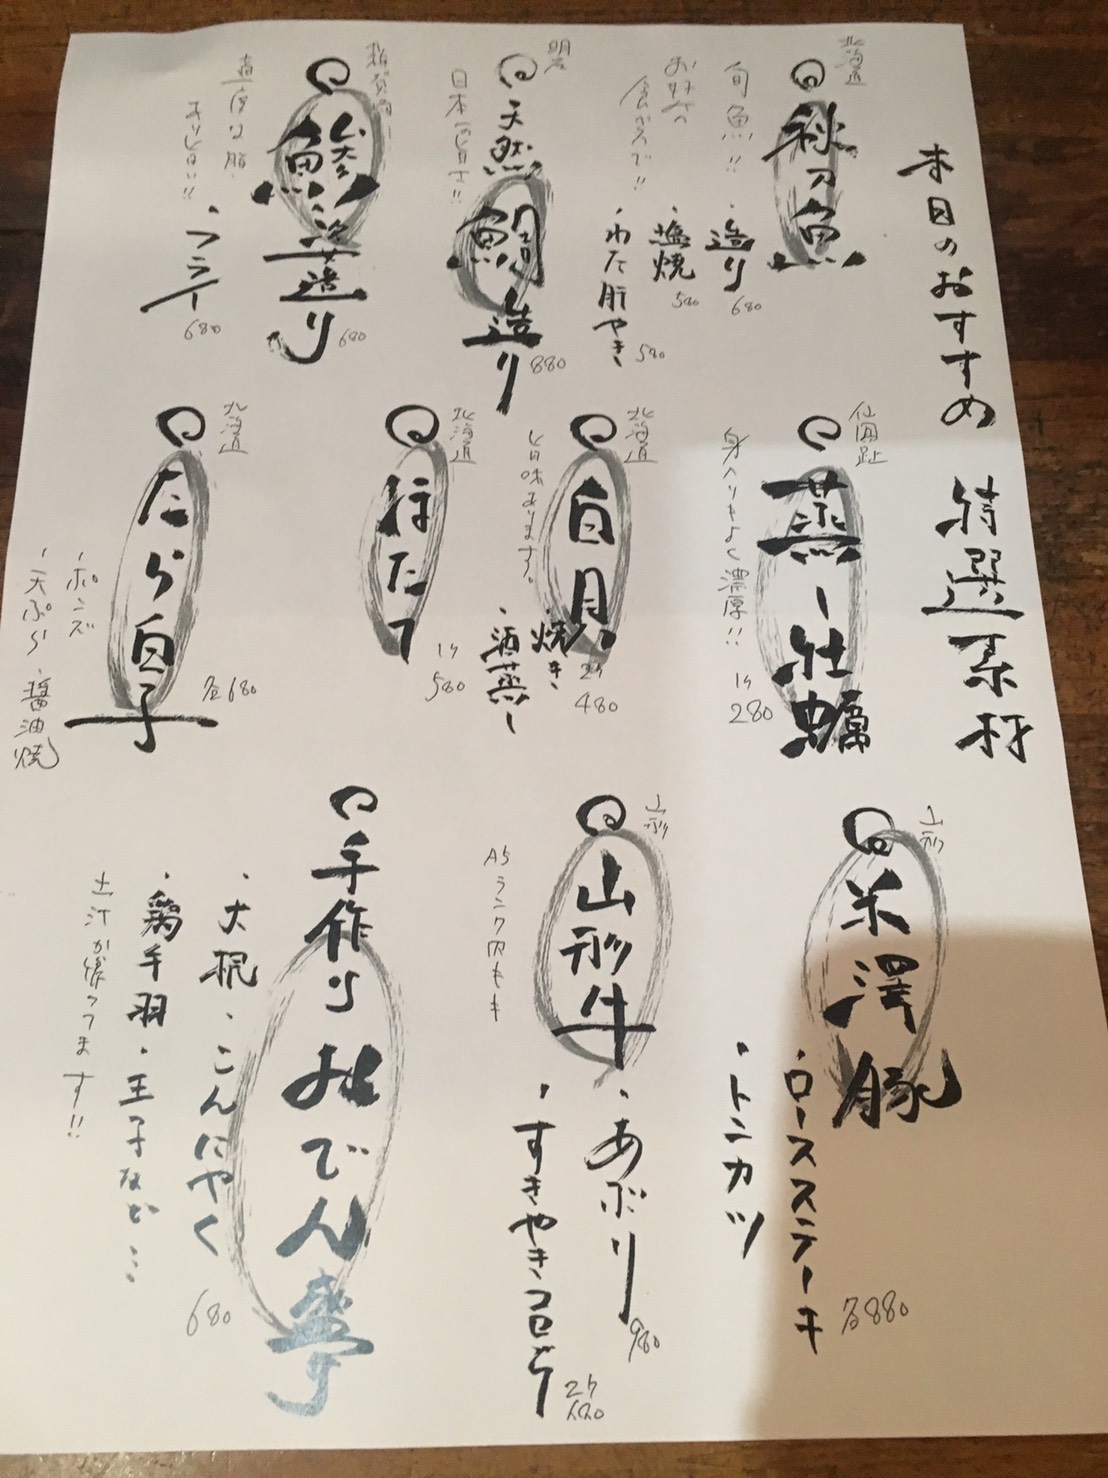 本日のおすすめ 特選素材
北海道
秋刀魚
旬魚!!
お好みの
食べ方で!!
・造り 680
・塩焼 580
・わた肝やき 580
明石
天然鯛造り 880
日本一旨さ!!
鯵造り 680
・フライ 680
仙鳳趾
蒸し牡蠣
身入りもよく濃厚!!
1ケ 280
北海道
白貝
旨味あります。
・焼き
・酒蒸し
2ケ 480
北海道
ほたて
1ケ 580
北海道
たら白子
各680
・ポンズ
・天ぷら・醤油焼
山形
米澤豚
・ロースステーキ
・トンカツ
各880
山形
山形牛
A5ランク内もも
・あぶり 980
・すきやきコロッケ
手作りおでん盛
・大根・こんにゃく
・鶏手羽・玉子など…
680